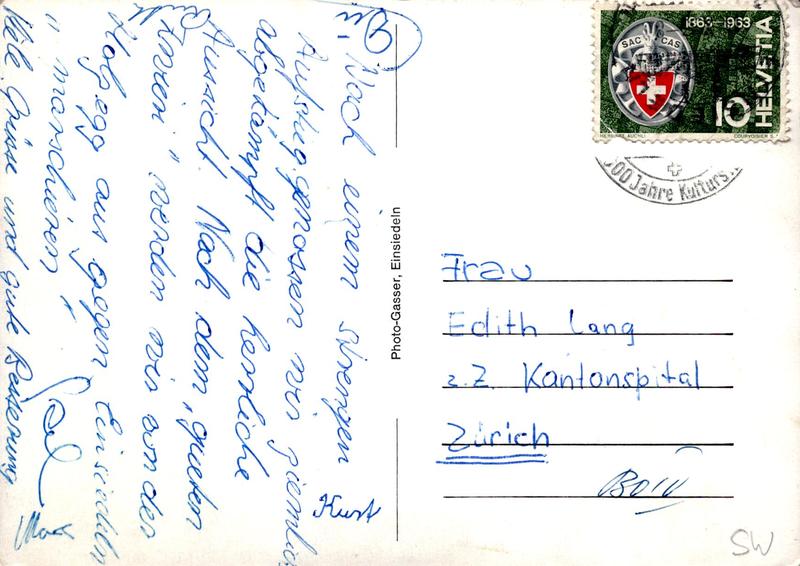 Nach einem strengen
Aufstieg genossen wir ziemlich
abgekämpft die herrliche
Aussicht. Nach dem „gueten
" werden wir von der
Holzegg aus gegen Einsiedeln
" marschieren "
Viele Grüsse und gute Besserung
Kurt
Photo-Gasser, Einsiedeln
1863-1963
SAC CAS
HELVETIA
10
COURVOISIER S.A.
Jahre Kulturs
Frau
Edith Lang
z.Z. Kantonspital
Zürich
SW